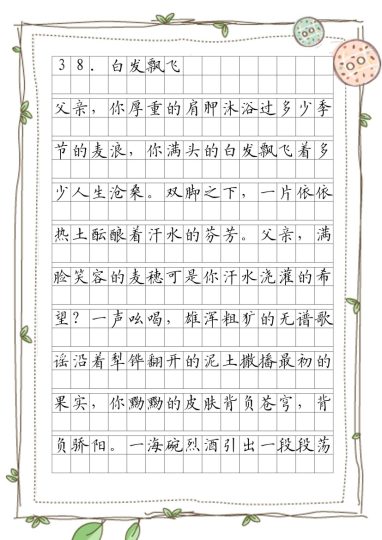 38．白发飘飞
父亲，你厚重的肩胛沐浴过多少季
节的麦浪，你满头的白发飘飞着多
少人生沧桑。双脚之下，一片依依
热土酝酿着汗水的芬芳。父亲，满
脸笑容的麦穗可是你汗水浇灌的希
望？一声吆喝，雄浑粗犷的无谱歌
谣沿着犁铧翻开的泥土撒播最初的
果实，你黝黝的皮肤背负苍穹，背
负骄阳。一海碗烈酒引出一段段荡